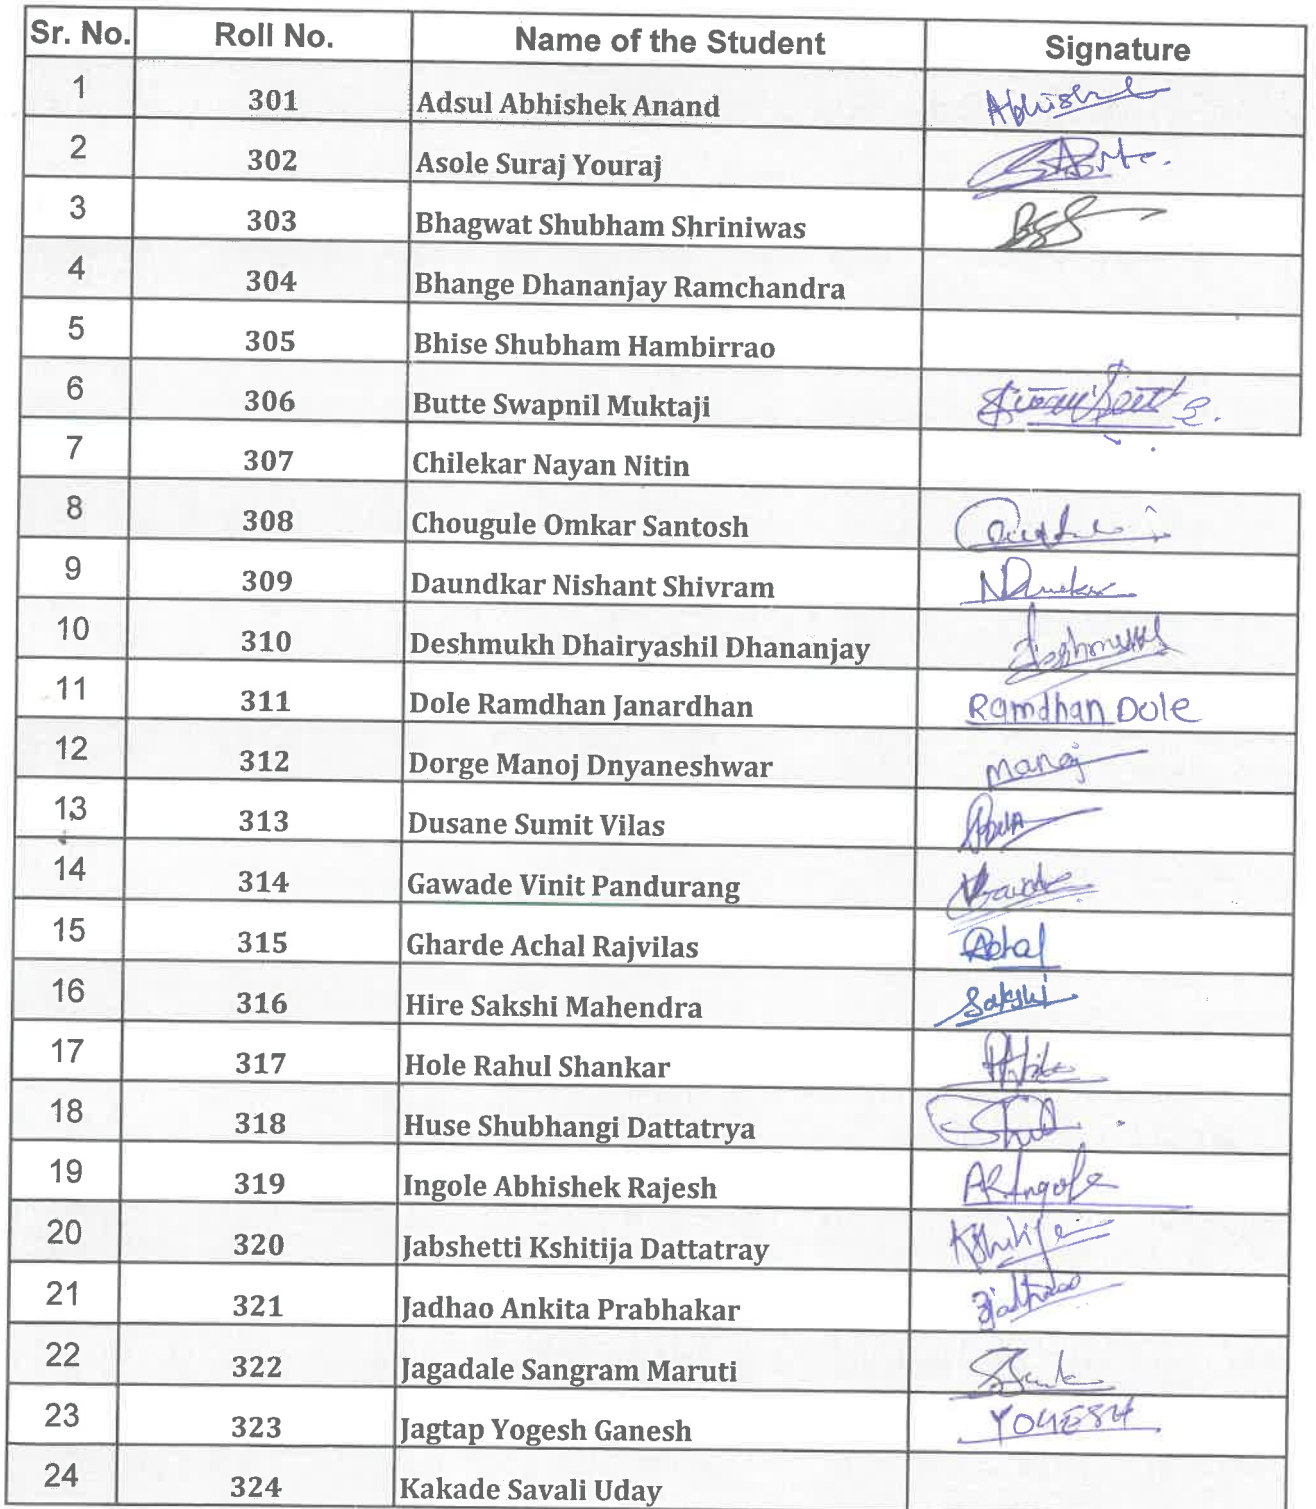 Sr. No. Roll No. Name of the Student Signature
1 301 Adsul Abhishek Anand Abhishek
2 302 Asole Suraj Youraj
3 303 Bhagwat Shubham Shriniwas
4 304 Bhange Dhananjay Ramchandra
5 305 Bhise Shubham Hambirrao
6 306 Butte Swapnil Muktaji
7 307 Chilekar Nayan Nitin
8 308 Chougule Omkar Santosh
9 309 Daundkar Nishant Shivram
10 310 Deshmukh Dhairyashil Dhananjay Deshmukh
11 311 Dole Ramdhan Janardhan Ramdhan Dole
12 312 Dorge Manoj Dnyaneshwar manoj
13 313 Dusane Sumit Vilas
14 314 Gawade Vinit Pandurang
15 315 Gharde Achal Rajvilas Achal
16 316 Hire Sakshi Mahendra Sakshi
17 317 Hole Rahul Shankar
18 318 Huse Shubhangi Dattatrya
19 319 Ingole Abhishek Rajesh AR.Ingole
20 320 Jabshetti Kshitija Dattatray Kshitija
21 321 Jadhao Ankita Prabhakar
22 322 Jagadale Sangram Maruti
23 323 Jagtap Yogesh Ganesh YOGESH
24 324 Kakade Savali Uday